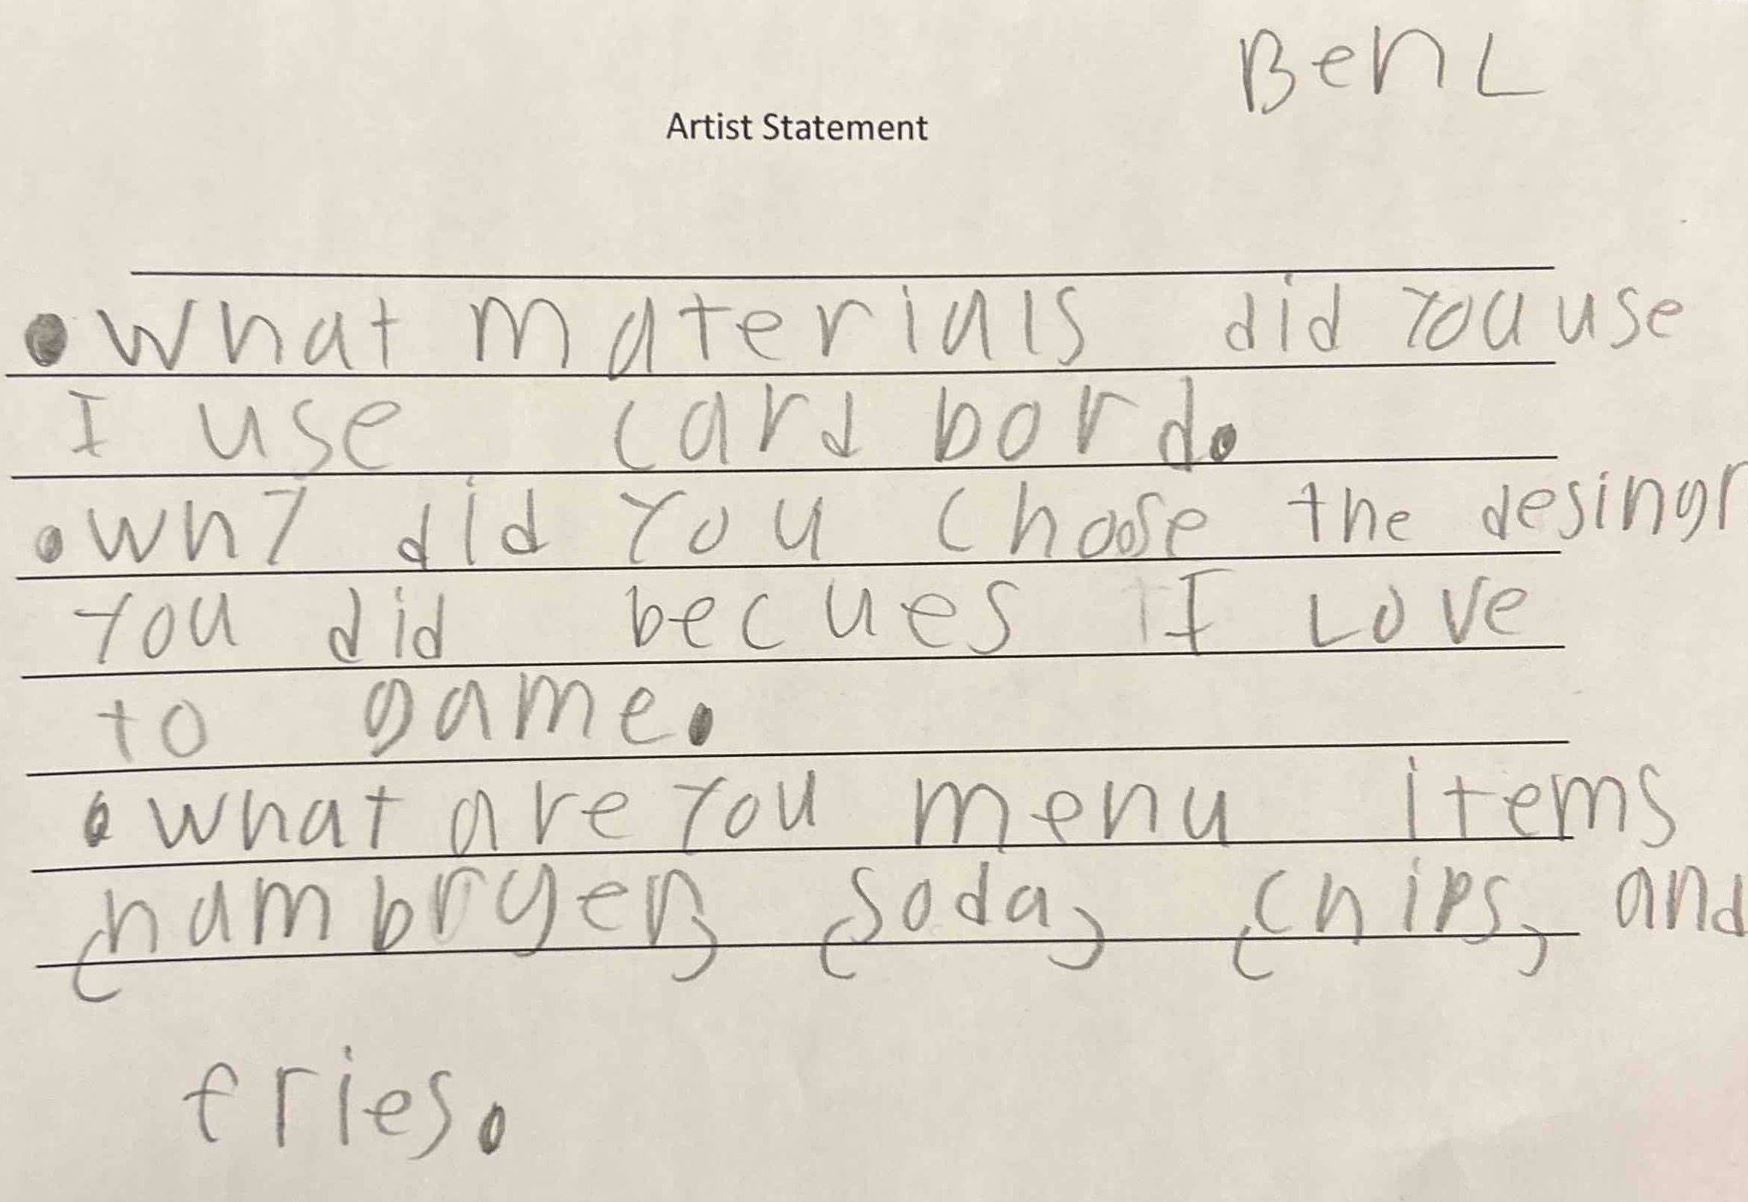 Ben L
Artist Statement
• What materials did You use
I use card bord.
• Why did You choose the desingr
You did becues I Love
to game.
• What are You menu items
hambrger, soda, chips, and
fries.